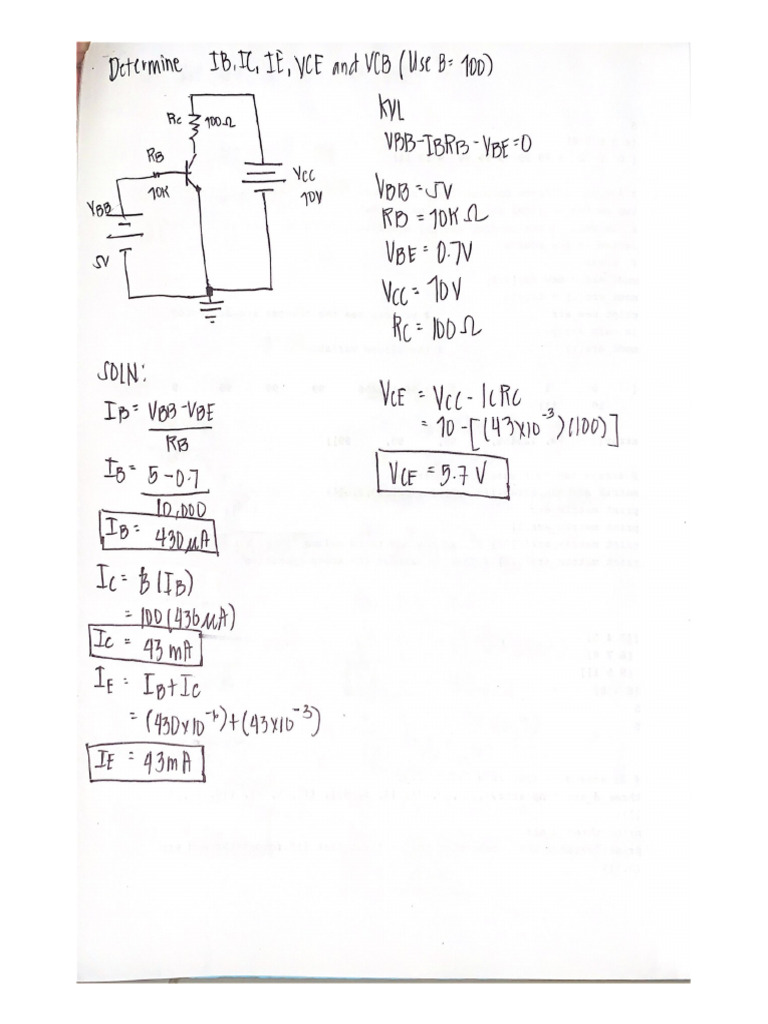 Determine IB, IC, IE, VCE and VCB (Use B= 100)
RC 100Ω
RB
10K
VBB
5V
VCC
10V
KVL
VBB-IBRB-VBE=0
VBB=5V
RB=10KΩ
VBE=0.7V
VCC=10V
RC=100Ω
SOLN:
IB=VBB-VBE
RB
IB=5-0.7
10,000
IB=430μA
IC=β(IB)
=100(430μA)
IC=43mA
IE=IB+IC
=(430x10^-6)+(43x10^-3)
IE=43mA
VCE=VCC-ICRC
=10-[(43x10^-3)(100)]
VCE=5.7V